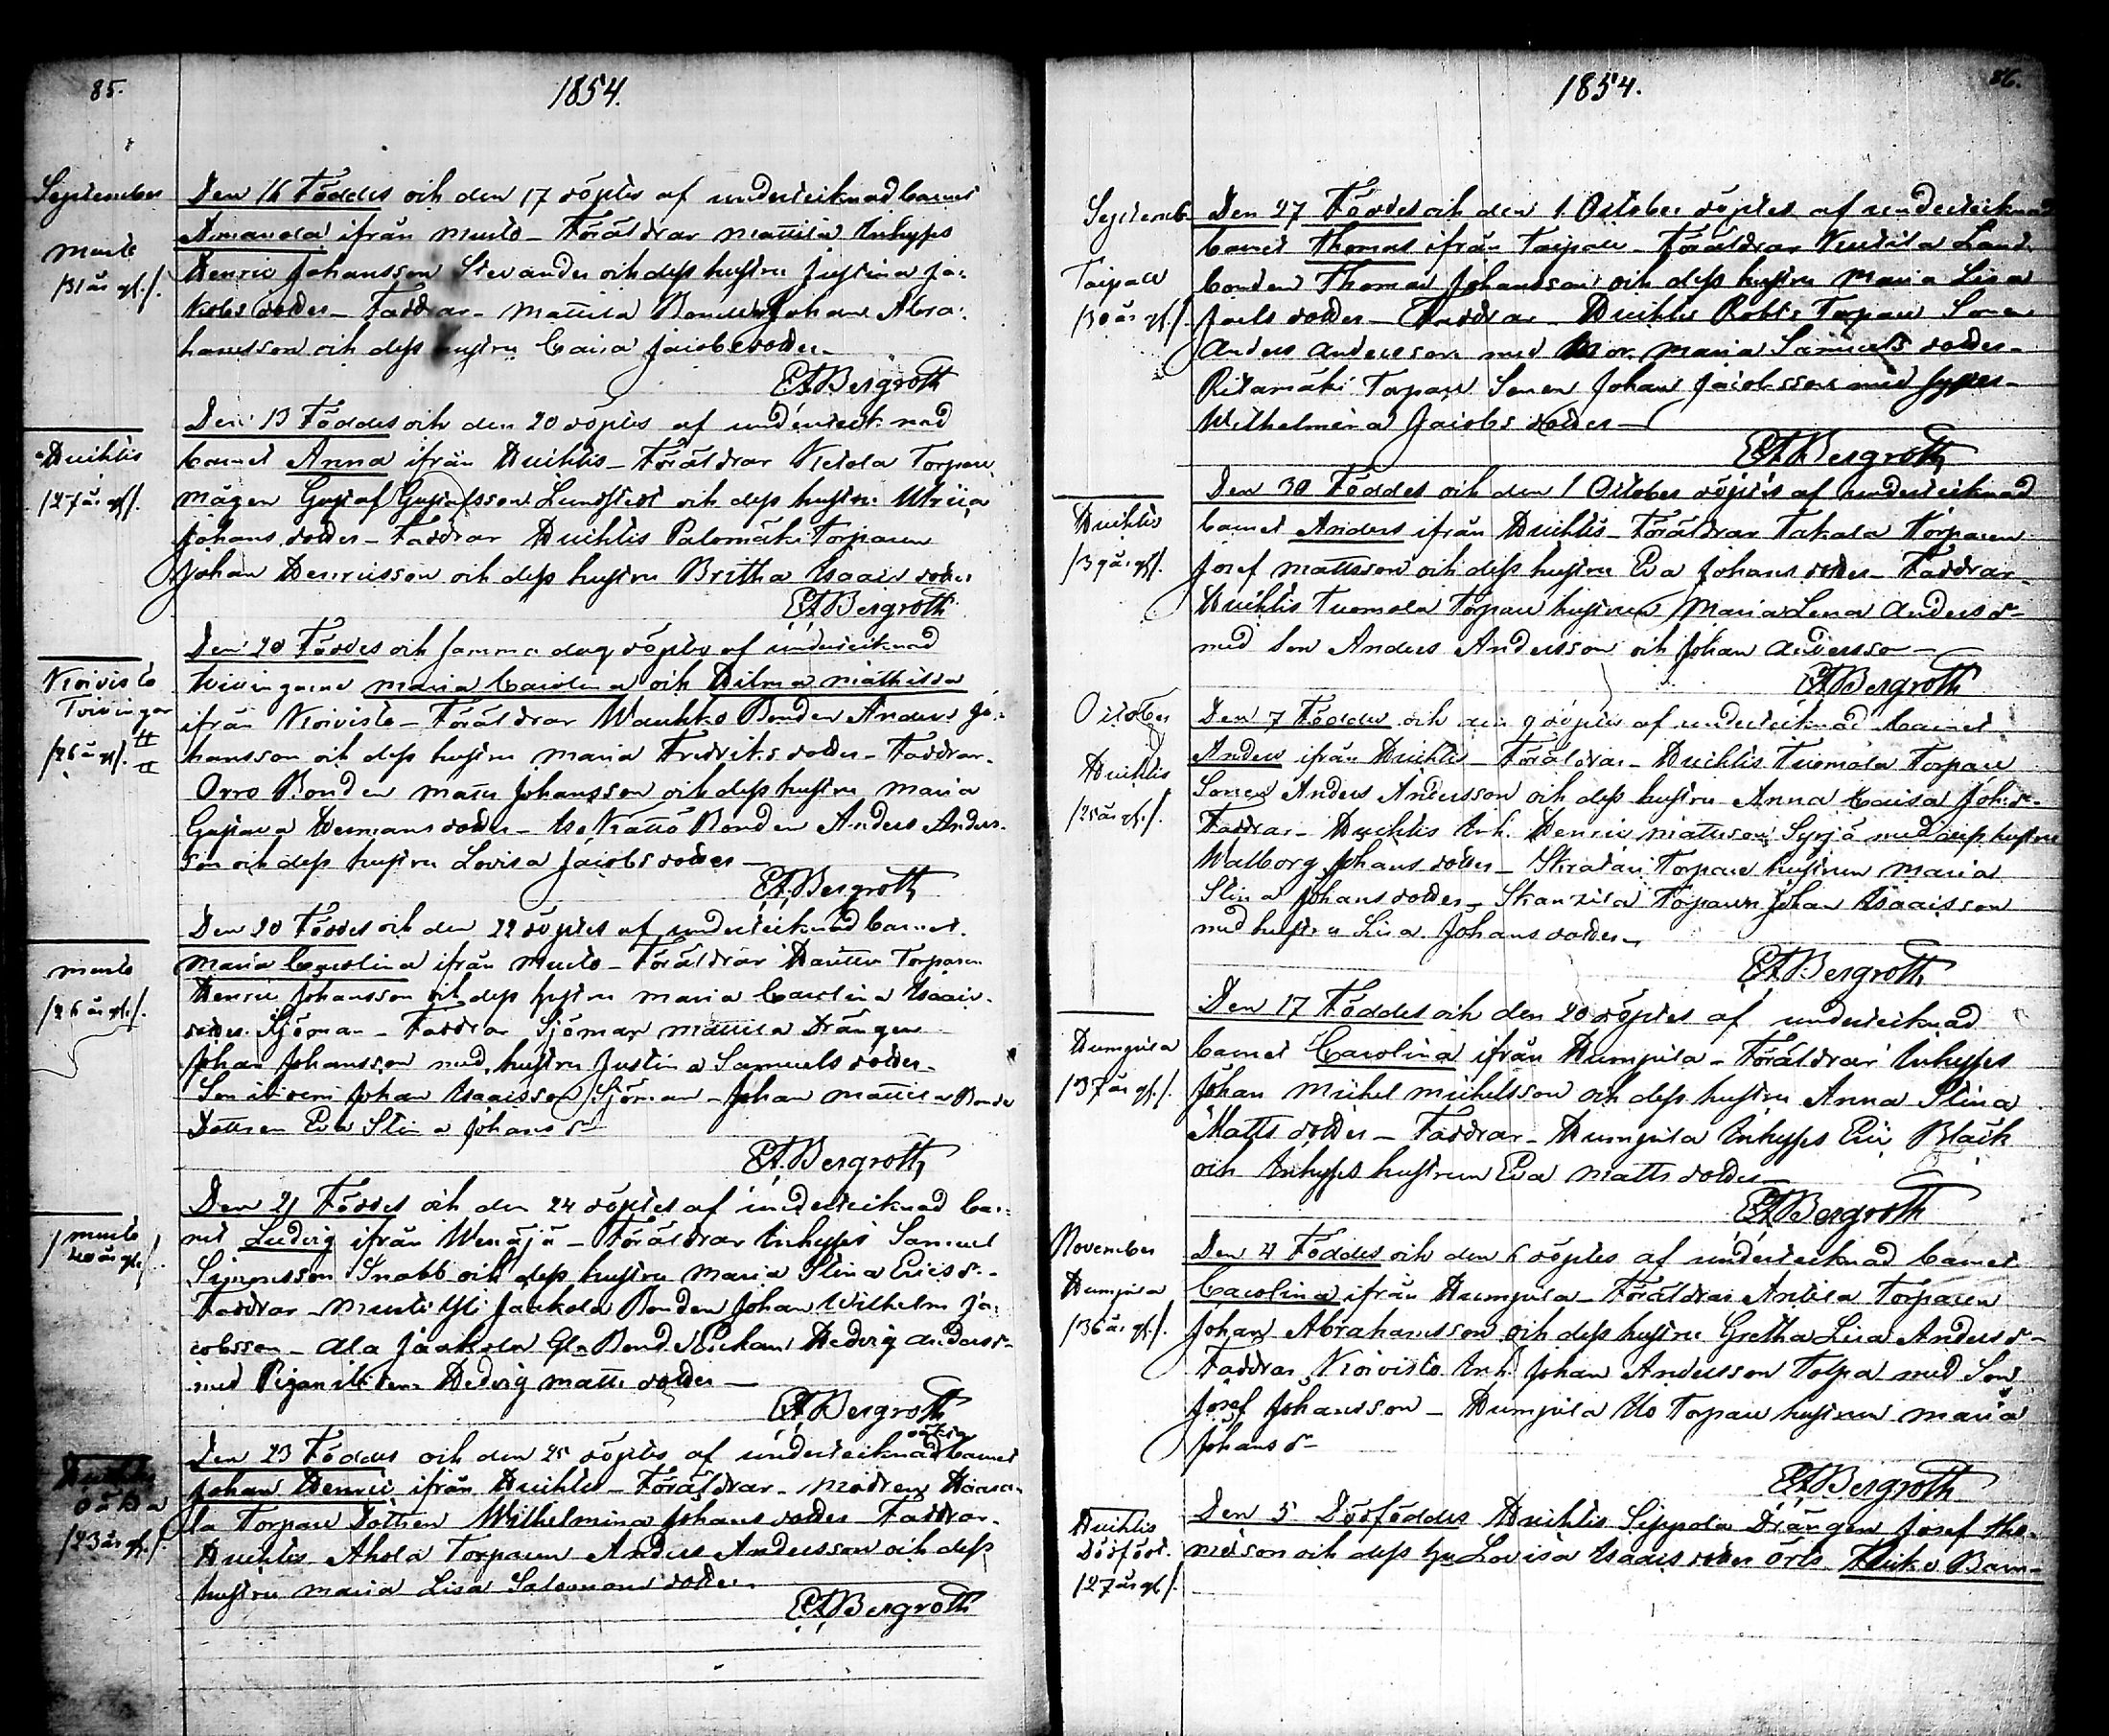 85.
1854.
September
Musto
/31 år gl./.
Den 16 Föddes och den 17 döptes af undertecknad barnet
Amanda ifrån Musto – Föräldrar Mattila Inhyses
Henric Johansson Stevander och dess hustru Justina Ja-
kobs dotter – Faddrar – Mattila Bonden Johan Abra-
hamsson och dess hustru Caisa Jacobs dotter –
EA Bergroth
Huihtis
/27 år gl./.
Den 13 Föddes och den 20 döptes af undertecknad
barnet Anna ifrån Huihtis – Föräldrar Torpare
mågen Gustaf Gustafsson Lundstedt och dess hustru Ulrica
Johans dotter – Faddrar Huihtis Palomäki Torparen
Johan Henricsson och dess hustru Britha Isaacs dotter
EA Bergroth
Koivisto
Tvivingar
/26 år gl./.
Den 20 Föddes och samma dag döptes af undertecknad
tvivingarne Maria Carolina och Hilma Mathilda
ifrån Koivisto – Föräldrar Wauhko Bonden Anders Jo-
hansson och dess hustru Maria Fredriks dotter – Faddrar –
Orro Bonden Matts Johansson och dess hustru Maria
Gustava Hermans dotter – Bonden Anders Anders-
son och dess hustru Lovisa Jacobs dotter –
EA Bergroth
Musto
/26 år gl./.
Den 20 Föddes och den 22 döptes af undertecknad barnet
Maria Carolina ifrån Musto – Föräldrar Torparen
Henric Johansson och dess hustru Maria Carolina Isaacs
dotter Sjöman – Faddrar Sjöman Mattila Drängen
Johan Johansson med hustru Justina Samuels dotter –
Son itidem Johan Isaacsson Sjöman – Johan Mattila Bonde
Dottren Eva Stina Johans d–
EA Bergroth
Musto
/40 år gl./.
Den 21 Föddes och den 24 döptes af undertecknad bar-
net Ludvig ifrån Wenäjä – Föräldrar Inhyses Samuel
Simonsson Snabb och dess hustru Maria Stina Erics d. –
Faddrar – Musto Yli Jaakola Bonden Johan Wilhelm Ja-
cobsson – Ala Jaakola Gla Bond Enkan Hedvig Anders d–
med Pigan itidem Hedvig Matts dotter –
EA Bergroth
Huihtis
oäkta
/23 år gl./.
Den 23 Föddes och den 25 döptes af undertecknad oäkta barnet
Johan Henric ifrån Huihtis – Föräldrar – Modren Haara-
la Torpare Dottren Wilhelmina Johans dotter – Faddrar –
Huihtis Ahola Torparen Anders Andersson och dess
hustru Maria Lisa Salomons dotter –
EA Bergroth
86.
1854.
Septemb.
Taipale
/30 år gl./.
Den 27 Föddes och den 1 October döptes af undertecknad
barnet Thomas ifrån Taipale – Föräldrar Land-
bonden Thomas Johansson och dess hustru Maria Lisa
Joels dotter – Faddrar – Huihtis Torpare Sonen
Anders Andersson med Mor Maria Samuels dotter –
Ritamäki Torpare Sonen Johan Jacobsson med syster
Wilhelmina Jacobs dotter –
EA Bergroth
Huihtis
/39 år gl./.
Den 30 Föddes och den 1 October döptes af undertecknad
barnet Anders ifrån Huihtis – Föräldrar Takala Torparen
Josef Mattsson och dess hustru Eva Johans dotter – Faddrar –
Huihtis Tuomola Torpare hustrun Maria Lena Anders d–
med son Anders Andersson och Johan Andersson –
EA Bergroth
October
Huihtis
/25 år gl./.
Den 7 Föddes och den 9 döptes af undertecknad barnet
Anders ifrån Huihtis – Föräldrar – Huihtis Tuomola Torpare
Sonen Anders Andersson och dess hustru Anna Caisa Joh: d. –
Faddrar – Huihtis Inh. Henric Mattsson Syrjä med dess hustru
Walborg Johans dotter – Torpare hustrun Maria
Stina Johans dotter – Torparen Johan Isaacsson
med hustru Lisa Johans dotter –
EA Bergroth
Humpila
/37 år gl./.
Den 17 Föddes och den 20 döptes af undertecknad
barnet Carolina ifrån Humpila – Föräldrar Inhyses
Johan Michel Michelsson och dess hustru Anna Stina
Matts dotter – Faddrar – Humpila Inhyses Eric Bläck
och Inhyses hustrun Eva Matts dotter –
EA Bergroth
November
Humpila
/36 år gl./.
Den 4 Föddes och den 6 döptes af undertecknad barnet
Carolina ifrån Humpila – Föräldrar Antila Torparen
Johan Abrahamsson och dess hustru Gretha Lisa Anders d–
Faddrar Koivisto Inh. Johan Andersson Tolpa med Son
Josef Johansson – Humpila Torpare hustrun Maria
Johans d–
EA Bergroth
Huihtis
Dödfödt.
/27 år gl./.
Den 5. Dödföddes Huihtis Sippola Drängen Josef Tho-
masson och dess hu Lovisa Isaacs dotter örts Flicko Barn –